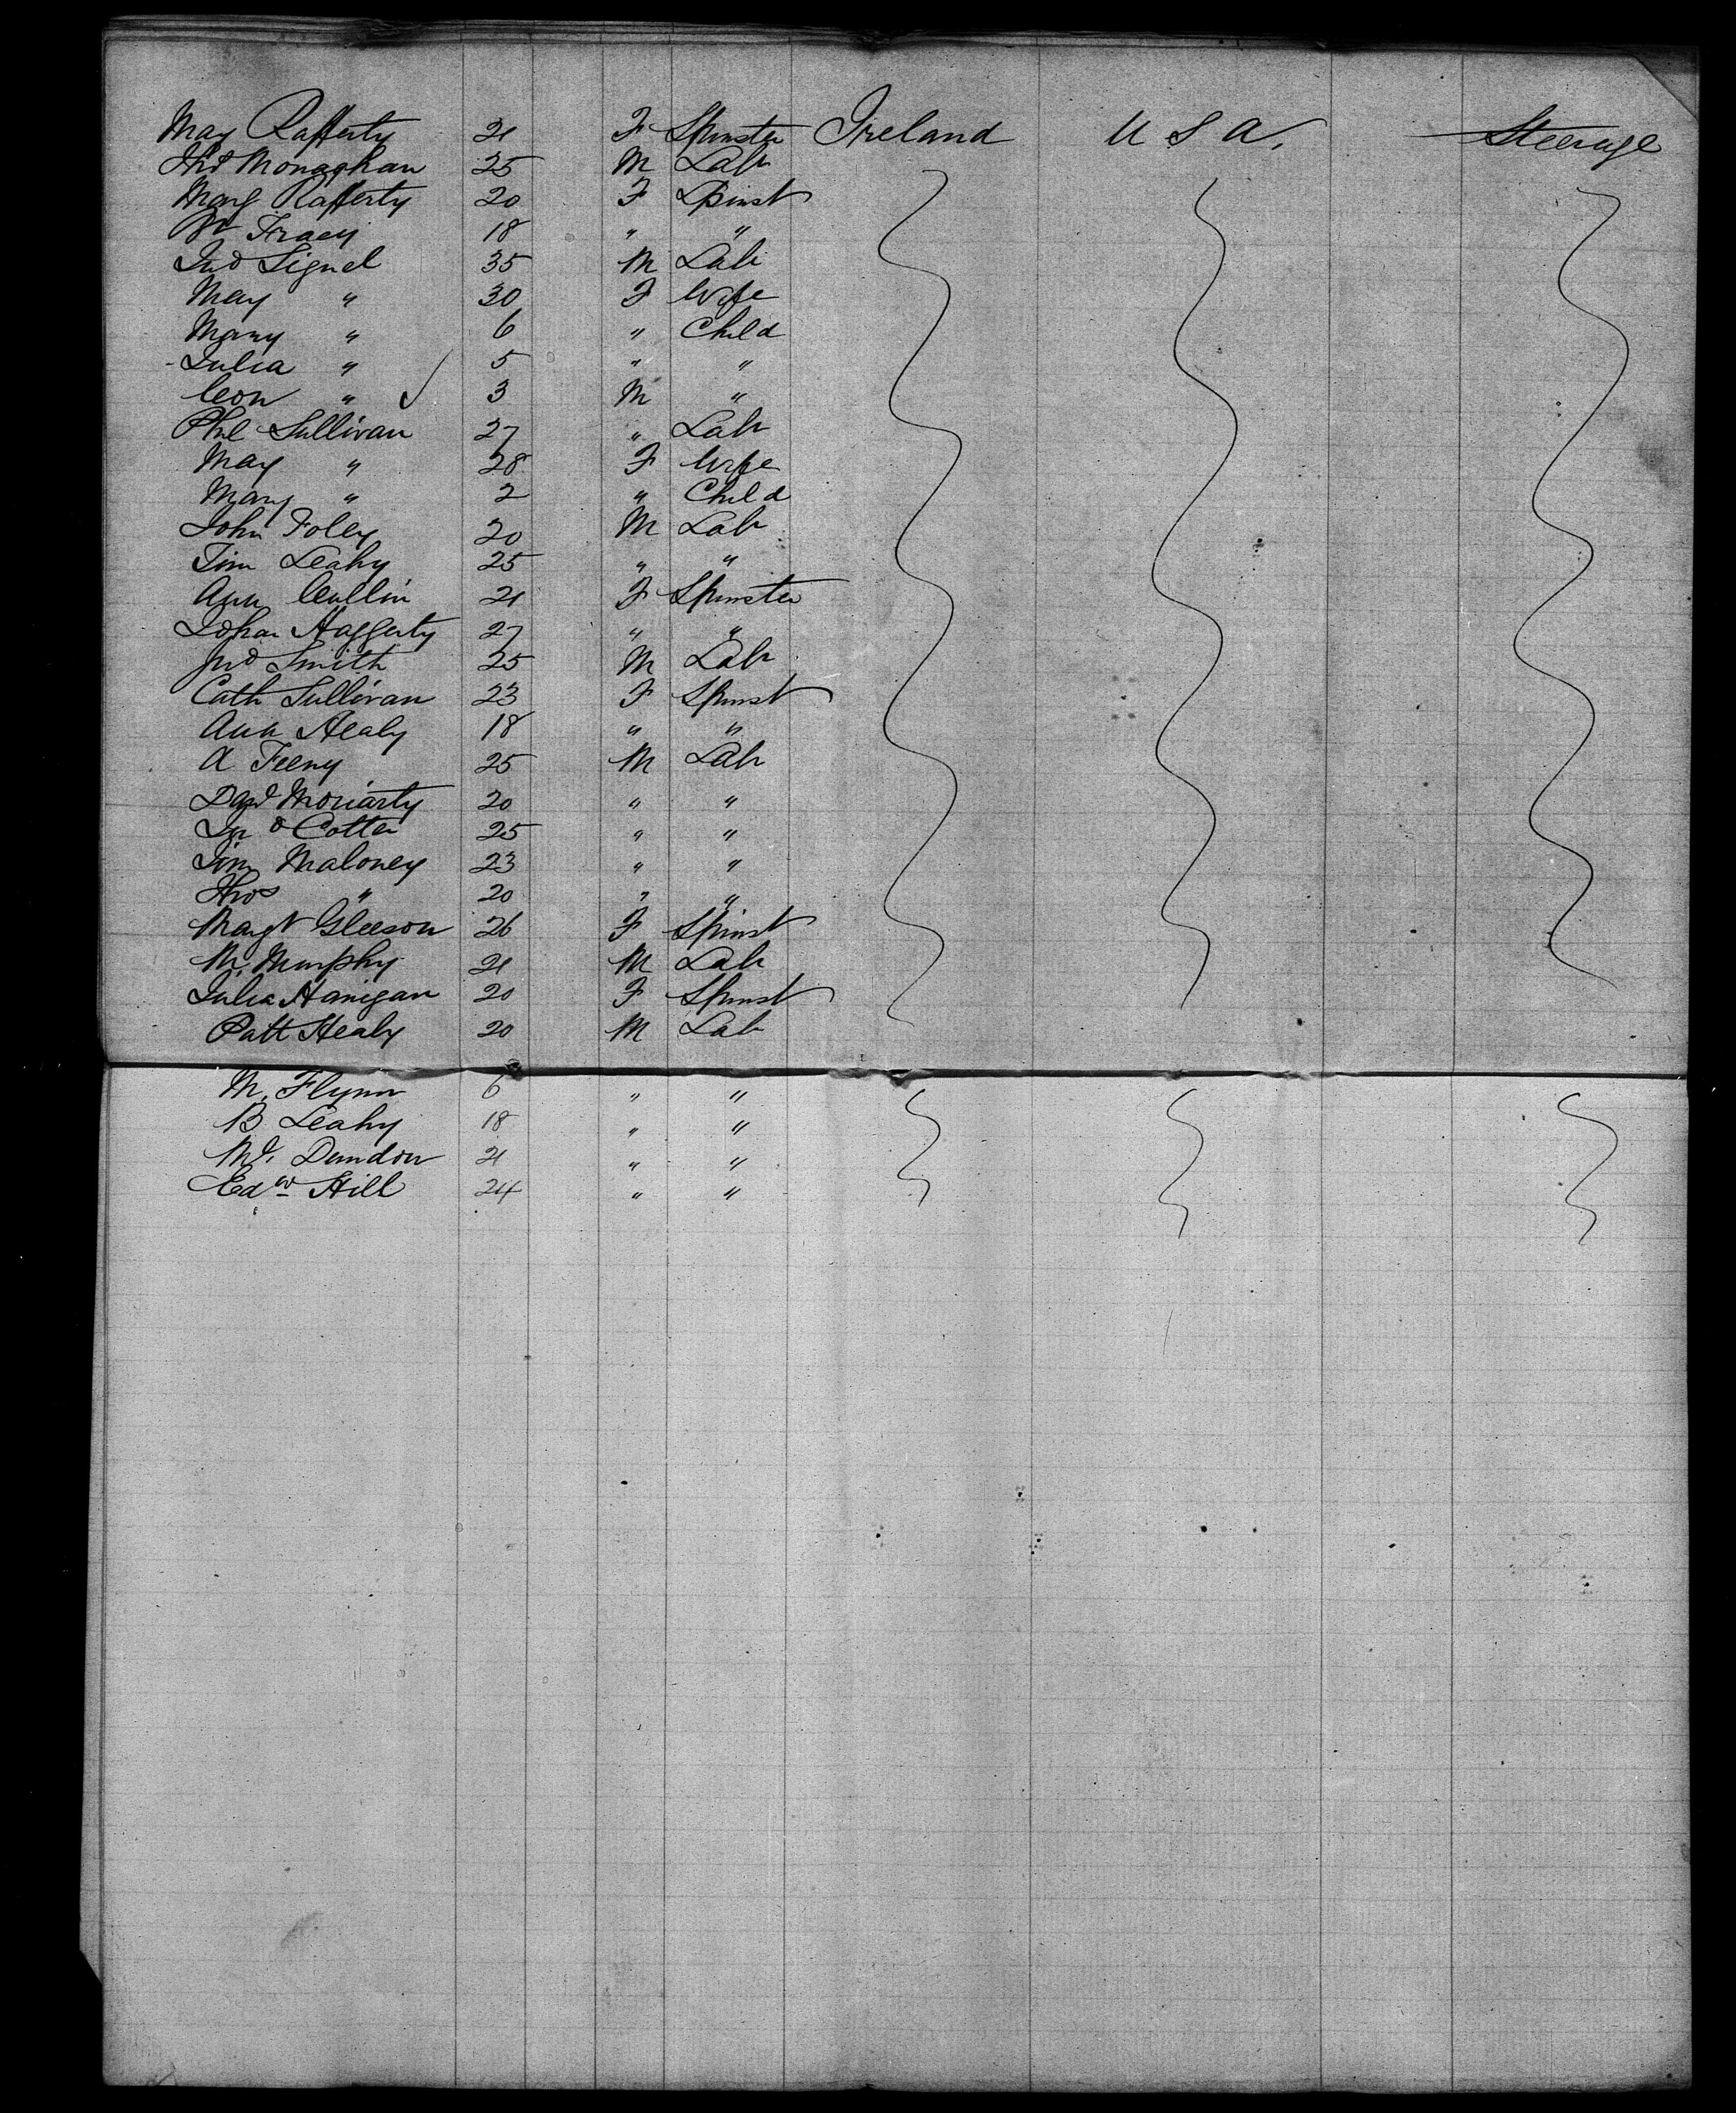 May Rafferty 21 F Spinster Ireland U S A. Steerage
Thos Monaghan 25 M Lab
Marg Rafferty 20 F Spinst
Bt Tracy 18 " "
Jno Signel 35 M Lab
May " 30 F Wife
Mary " 6 " Child
Julia " 5 " "
Con " 3 M "
Phil Sullivan 27 " Lab
May " 28 F Wife
Mary " 2 " Child
John Foley 20 M Lab
Tim Leahy 25 " "
Ann Cullin 21 F Spinster
Johan Haggerty 27 " "
Jno Smith 25 M Lab
Cath Sullivan 23 F Spinst
Ann Healy 18 " "
A Feeny 25 M Lab
Davd Moriarty 20 " "
Cotter 25 " "
Tim Maloney 23 " "
Thos " 20 " "
Margt Gleeson 26 F Spinst
M. Murphy 21 M Lab
Julia Hanigan 20 F Spinst
Patt Healy 20 M Lab
M. Flynn 6 " "
B Leahy 18 " "
Ml. Dundon 21 " "
Edw Hill 24 " "